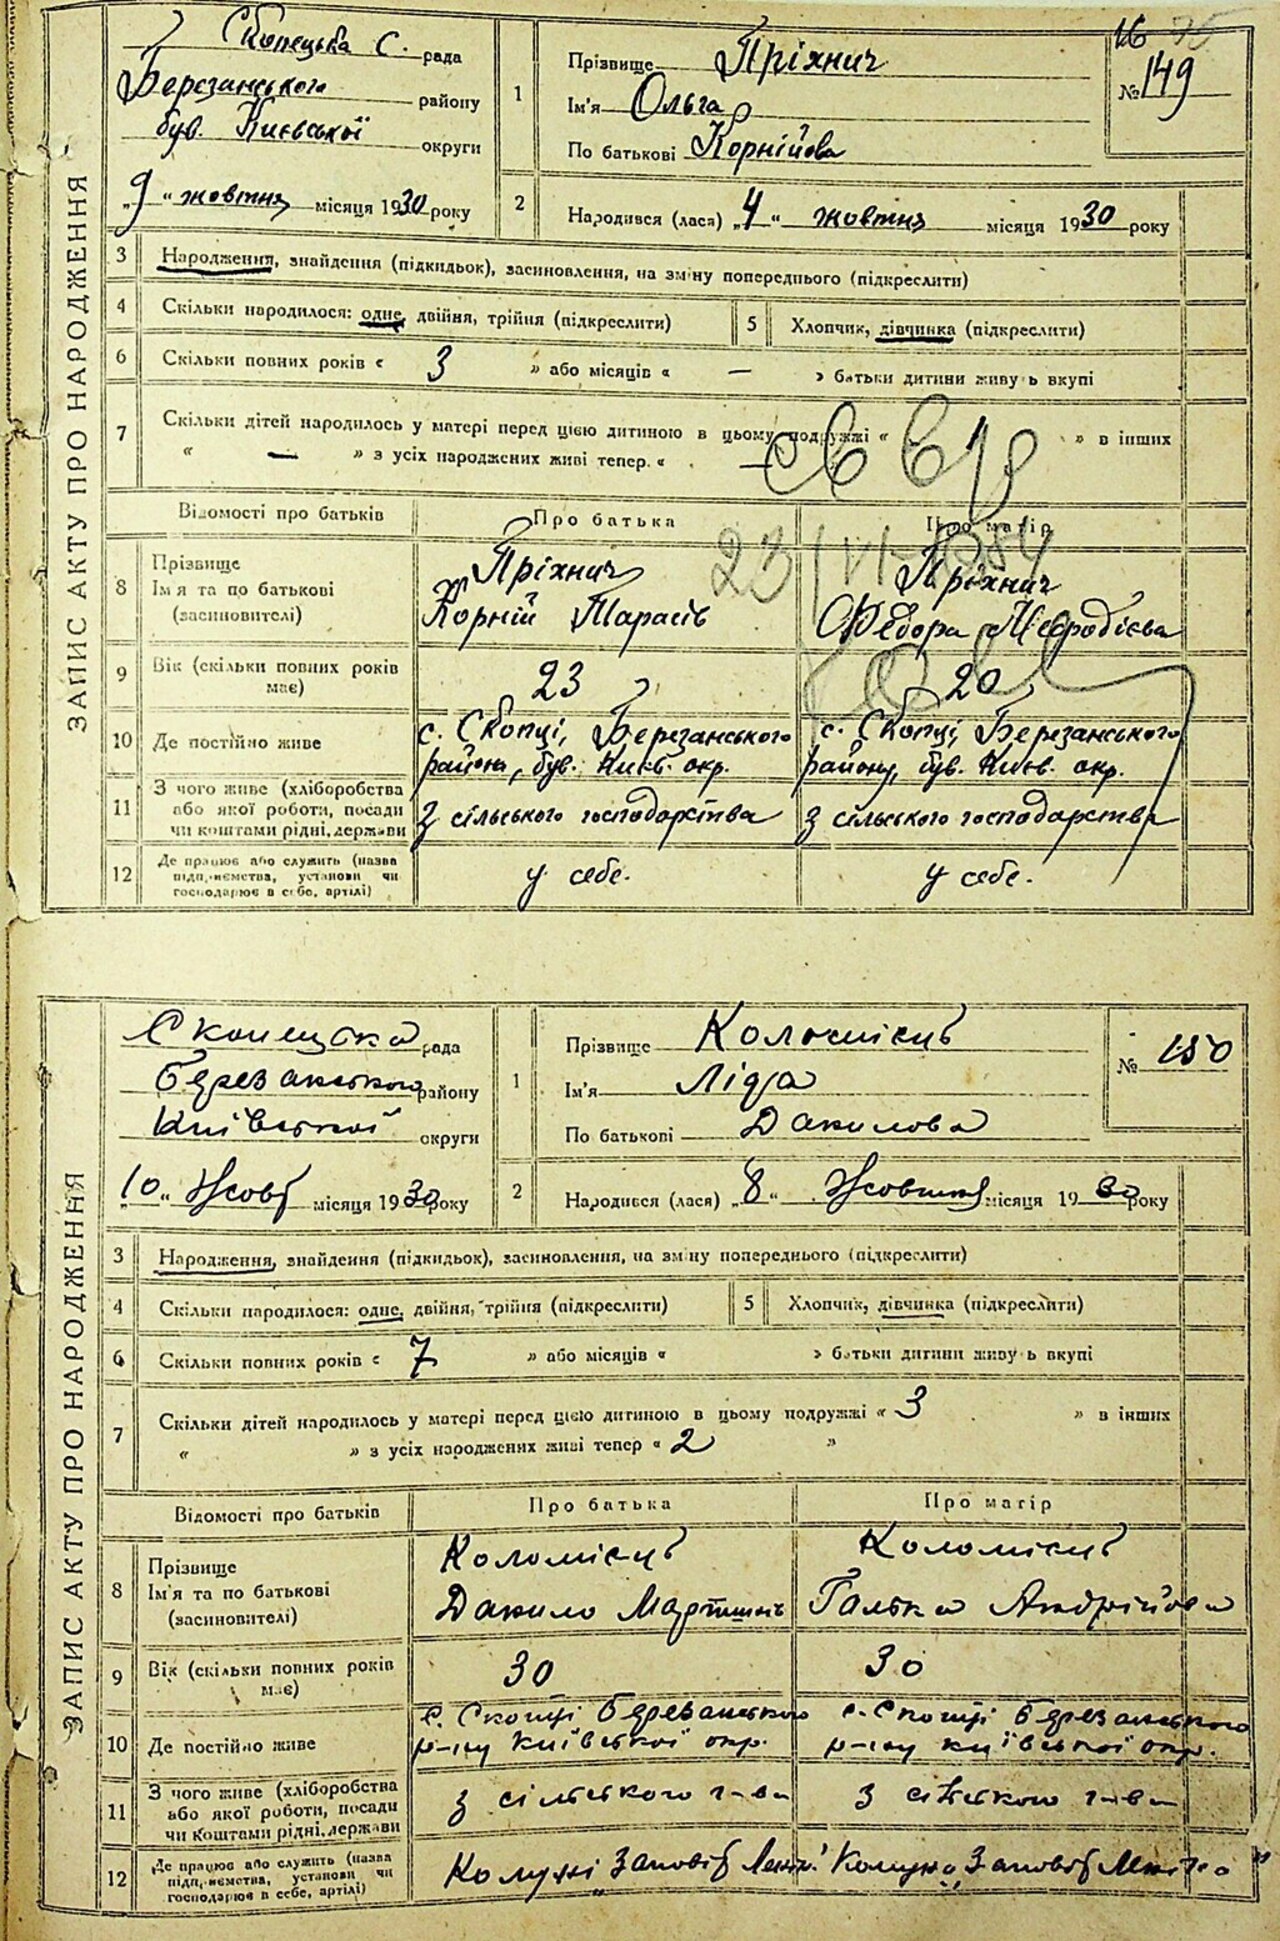 ЗАПИС АКТУ ПРО НАРОДЖЕННЯ
Скопецька с. рада
Березанського району
був. Київської округи
„9“ жовтня місяця 1930 року
1
Прізвище Пріхнич
Ім'я Ольга
По батькові Корнійова
16 75
№ 149
2
Народився (лася) „4“ жовтня місяця 1930 року
3 Народження, знайдення (підкидьок), засиновлення, на зміну попереднього (підкреслити)
4 Скільки народилося: одне, двійня, трійня (підкреслити) 5 Хлопчик, дівчинка (підкреслити)
6 Скільки повних років « 3 » або місяців « — » батьки дитини живуть вкупі
7 Скільки дітей народилось у матері перед цією дитиною в цьому подружжі « » в інших
« — » з усіх народжених живі тепер. « —
Відомості про батьків Про батька Про матір
23/VI-1984
8 Прізвище Ім'я та по батькові (засиновителі)
Пріхнич Пріхнич
Корній Тарасів Федора Мефодієва
9 Вік (скільки повних років має) 23 20
10 Де постійно живе
с. Скопці, Березанського с. Скопці, Березанського
району, був. Київ. окр. району, був. Київ. окр.
11 З чого живе (хліборобства або якої роботи, посади чи коштами рідні, держави
З сільського господарства З сільського господарства
12 Де працює або служить (назва підприємства, установи чи господарює в себе, артілі)
у себе. у себе.
ЗАПИС АКТУ ПРО НАРОДЖЕННЯ
Скопецька рада
Березанського району
Київської округи
„10“ Жовт місяця 1930 року
1
Прізвище Коломієць
Ім'я Ліда
По батькові Данилова
№ 150
2
Народився (лася) „8“ Жовтня місяця 1930 року
3 Народження, знайдення (підкидьок), засиновлення, на зміну попереднього (підкреслити)
4 Скільки народилося: одне, двійня, трійня (підкреслити) 5 Хлопчик, дівчинка (підкреслити)
6 Скільки повних років « 7 » або місяців « » батьки дитини живуть вкупі
7 Скільки дітей народилось у матері перед цією дитиною в цьому подружжі « 3 » в інших
« » з усіх народжених живі тепер « 2 »
Відомості про батьків Про батька Про матір
8 Прізвище Ім'я та по батькові (засиновителі)
Коломієць Коломієць
Данило Мартинів Галька Андрійова
9 Вік (скільки повних років має) 30 30
10 Де постійно живе
с. Скопці Березанського с. Скопці Березанського
р-ну Київської окр. р-ну Київської окр.
11 З чого живе (хліборобства або якої роботи, посади чи коштами рідні, держави
З сільського г-ва З сільського г-ва
12 Де працює або служить (назва підприємства, установи чи господарює в себе, артілі)
Комуні „Заповіт Лені." Комуна „Заповіт Леніна"